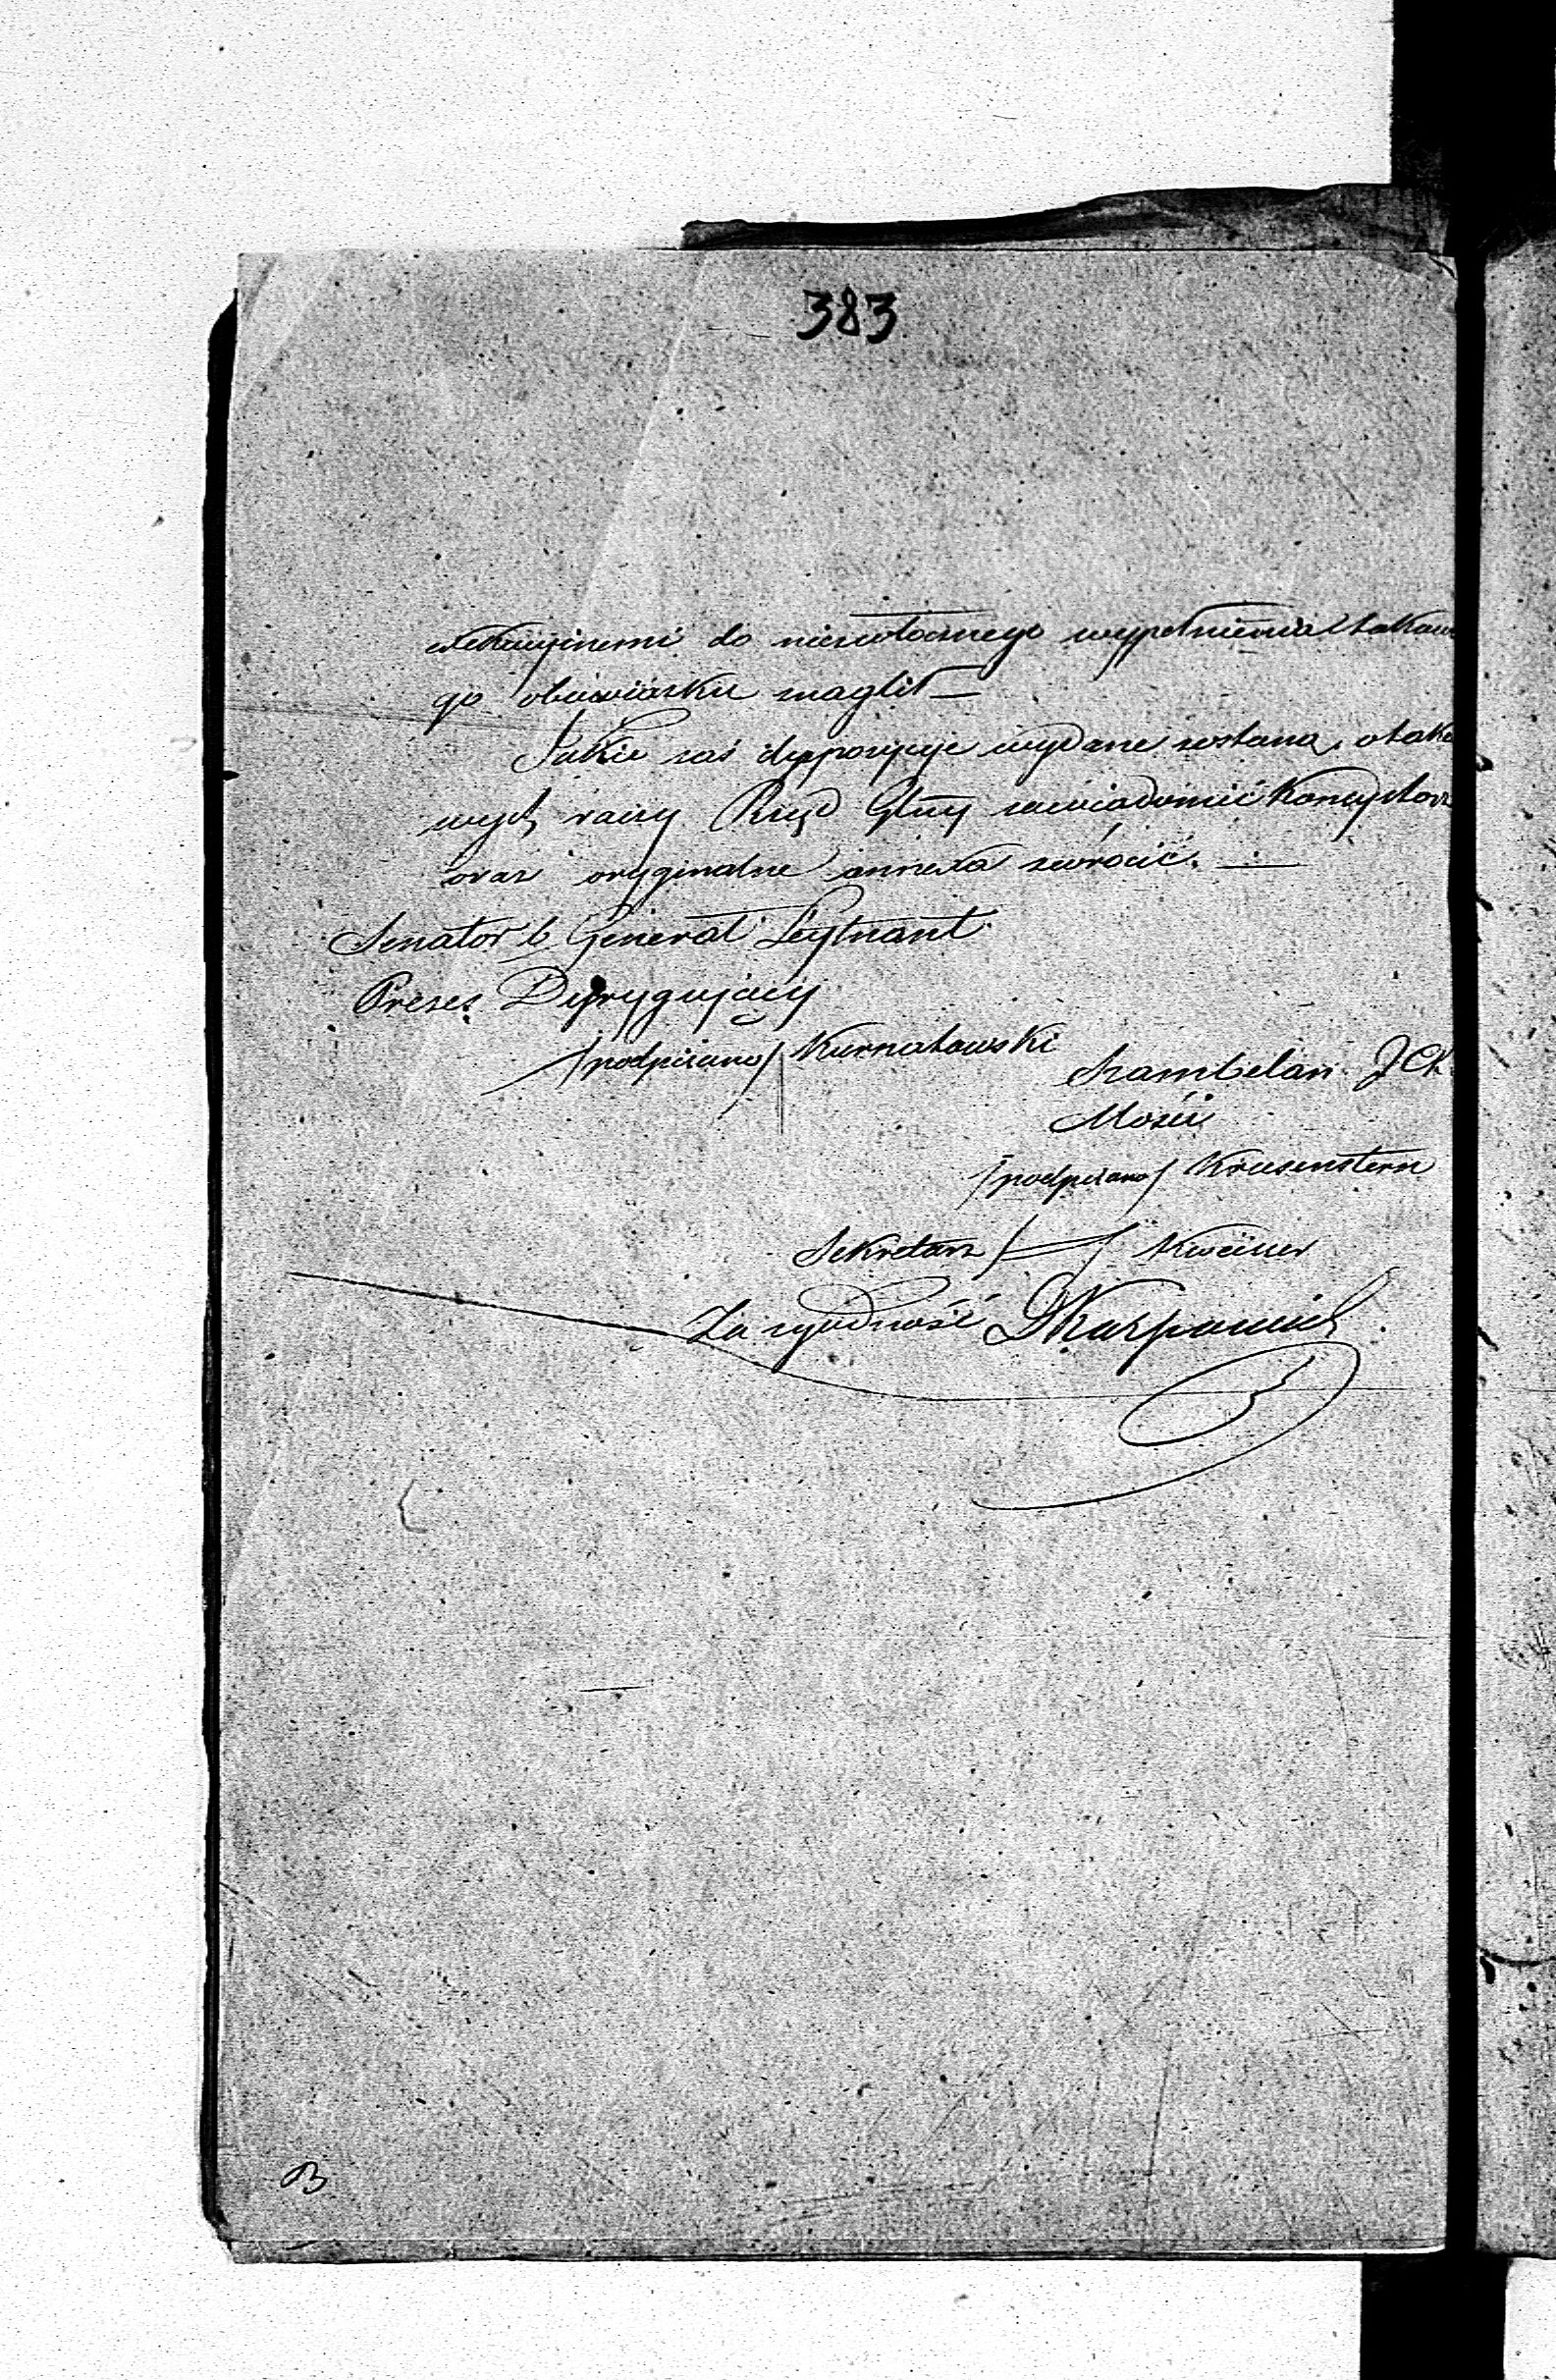 383
exekucyinemi do niezwłocznego wypełnienia takow
go obowiązku naglił —
Jakie zaś dyspozycye wydane zostaną, o tako
wych raczy Rząd Głny zawiadomić Konsystorz
oraz oryginalne annexa zwrócić. —
Senator b. Generał Leytnant
Prezes Dyrygujący
/podpisano/ Kurnatowski
Szambelan JCK
Mości
/podpisano/ Krusenstern
Sekretarz /—/
Za zgodność
B